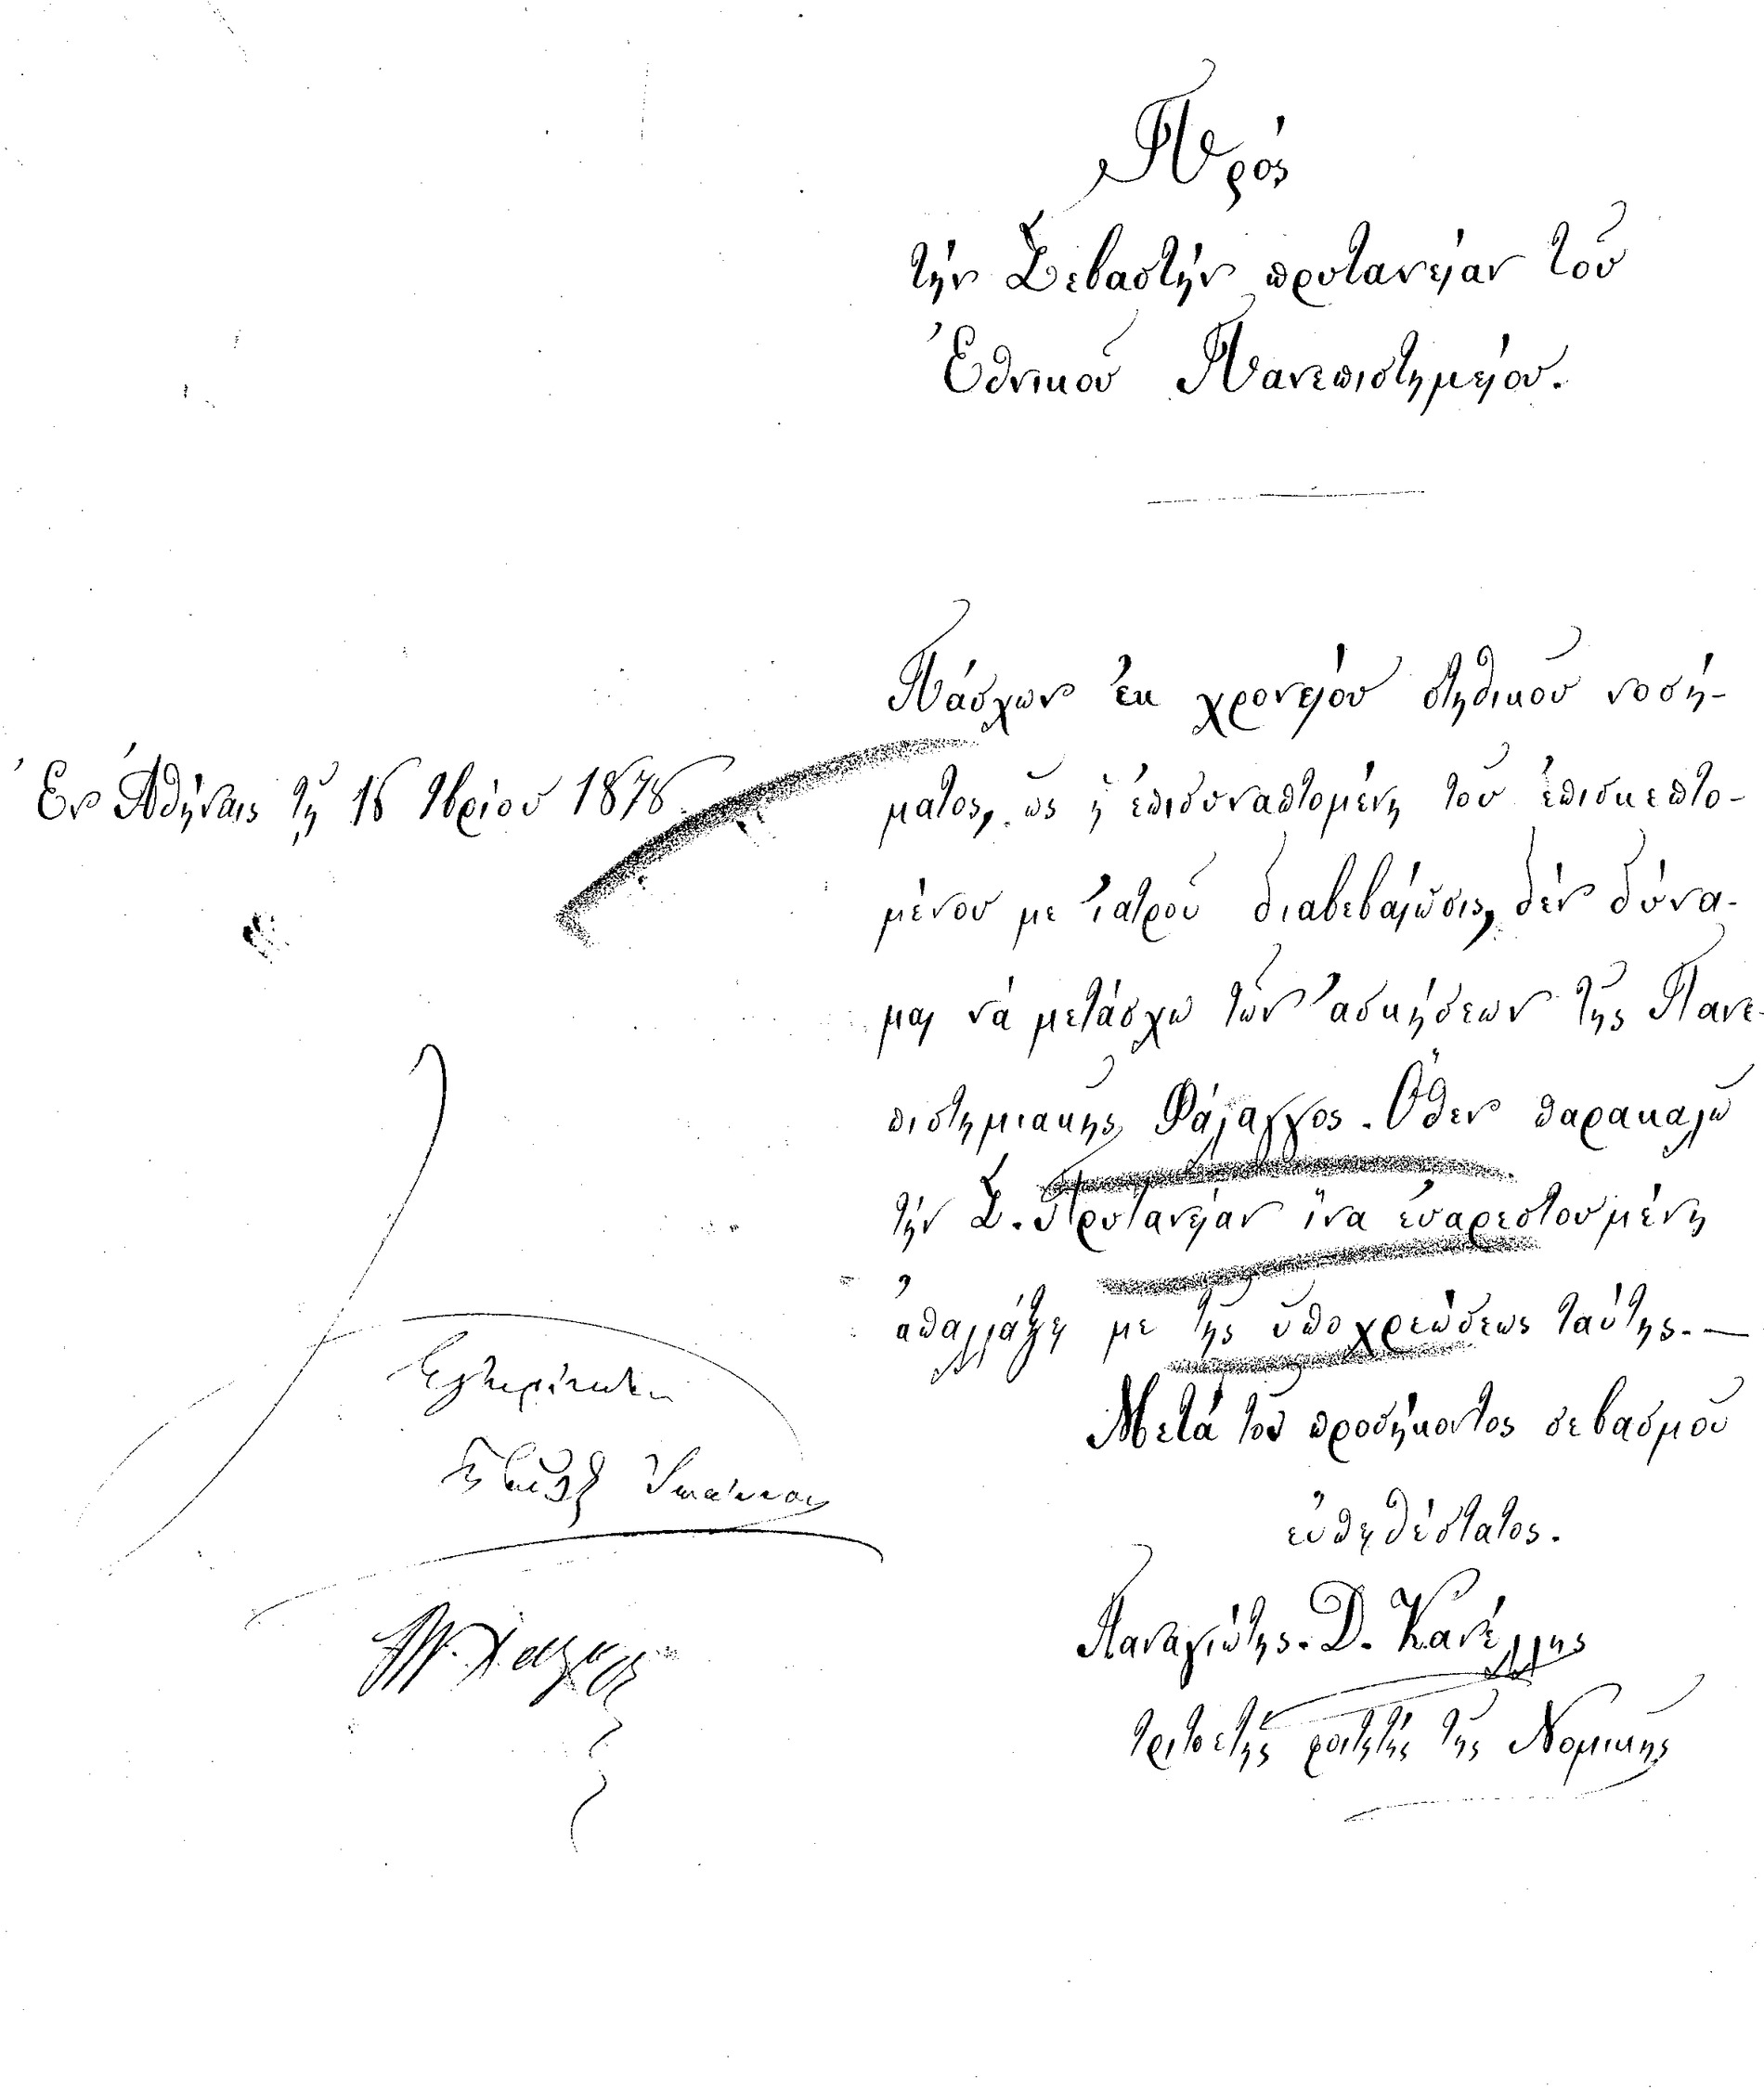 Πρός
τὴν Σεβαστὴν πρυτανείαν τοῦ
Ἐθνικοῦ Πανεπιστημείου.
Πάσχων ἐκ χρονείου στηθικοῦ νοσή-
ματος, ὡς ἡ ἐπισυναπτομένη τοῦ ἐπισκεπτο-
μένου με ἰατροῦ διαβεβαίωσις, δέν δύνα-
μαι νά μετάσχω τῶν ἀσκήσεων τῆς Πανε-
πιστημιακῆς Φάλαγγος. Ὅθεν παρακαλῶ
τήν Σ. Πρυτανείαν ἵνα εὐαρεστουμένη
ἀπαλλάξῃ με τῆς ὑποχρεώσεως ταύτης. —
Μετά τοῦ προσήκοντος σεβασμοῦ
εὐπειθέστατος.
Παναγιώτης. Δ. Κανέλλης
τριτοετής φοιτητής τῆς Νομικῆς
Ἐν Ἀθήναις τῇ 18 1878